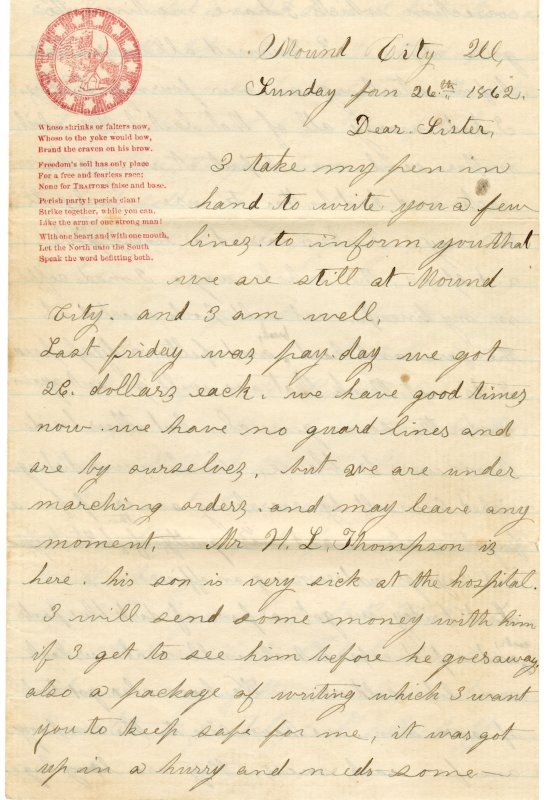 Mound City Ill,
Sunday Jan 26th 1862.
Dear Sister,
Whoso shrinks or falters now,
Whoso to the yoke would bow,
Brand the craven on his brow.
Freedom's soil has only place
For a free and fearless race;
None for TRAITORS false and base.
Perish party! perish clan!
Strike together, while you can,
Like the arm of one strong man!
With one heart and with one mouth,
Let the North unto the South
Speak the word befitting both.
I take my pen in
hand to write you a few
lines. to inform you that
we are still at Mound
City. and I am well,
Last friday was pay day we got
26. dollars each. we have good times
now. we have no guard lines and
are by ourselves, but we are under
marching orders. and may leave any
moment. Mr H. L. Thompson is
here. his son is very sick at the hospital.
I will send some money with him
if I get to see him before he goes away,
also a package of writing which I want
you to keep safe for me, it was got
up in a hurry and needs some-